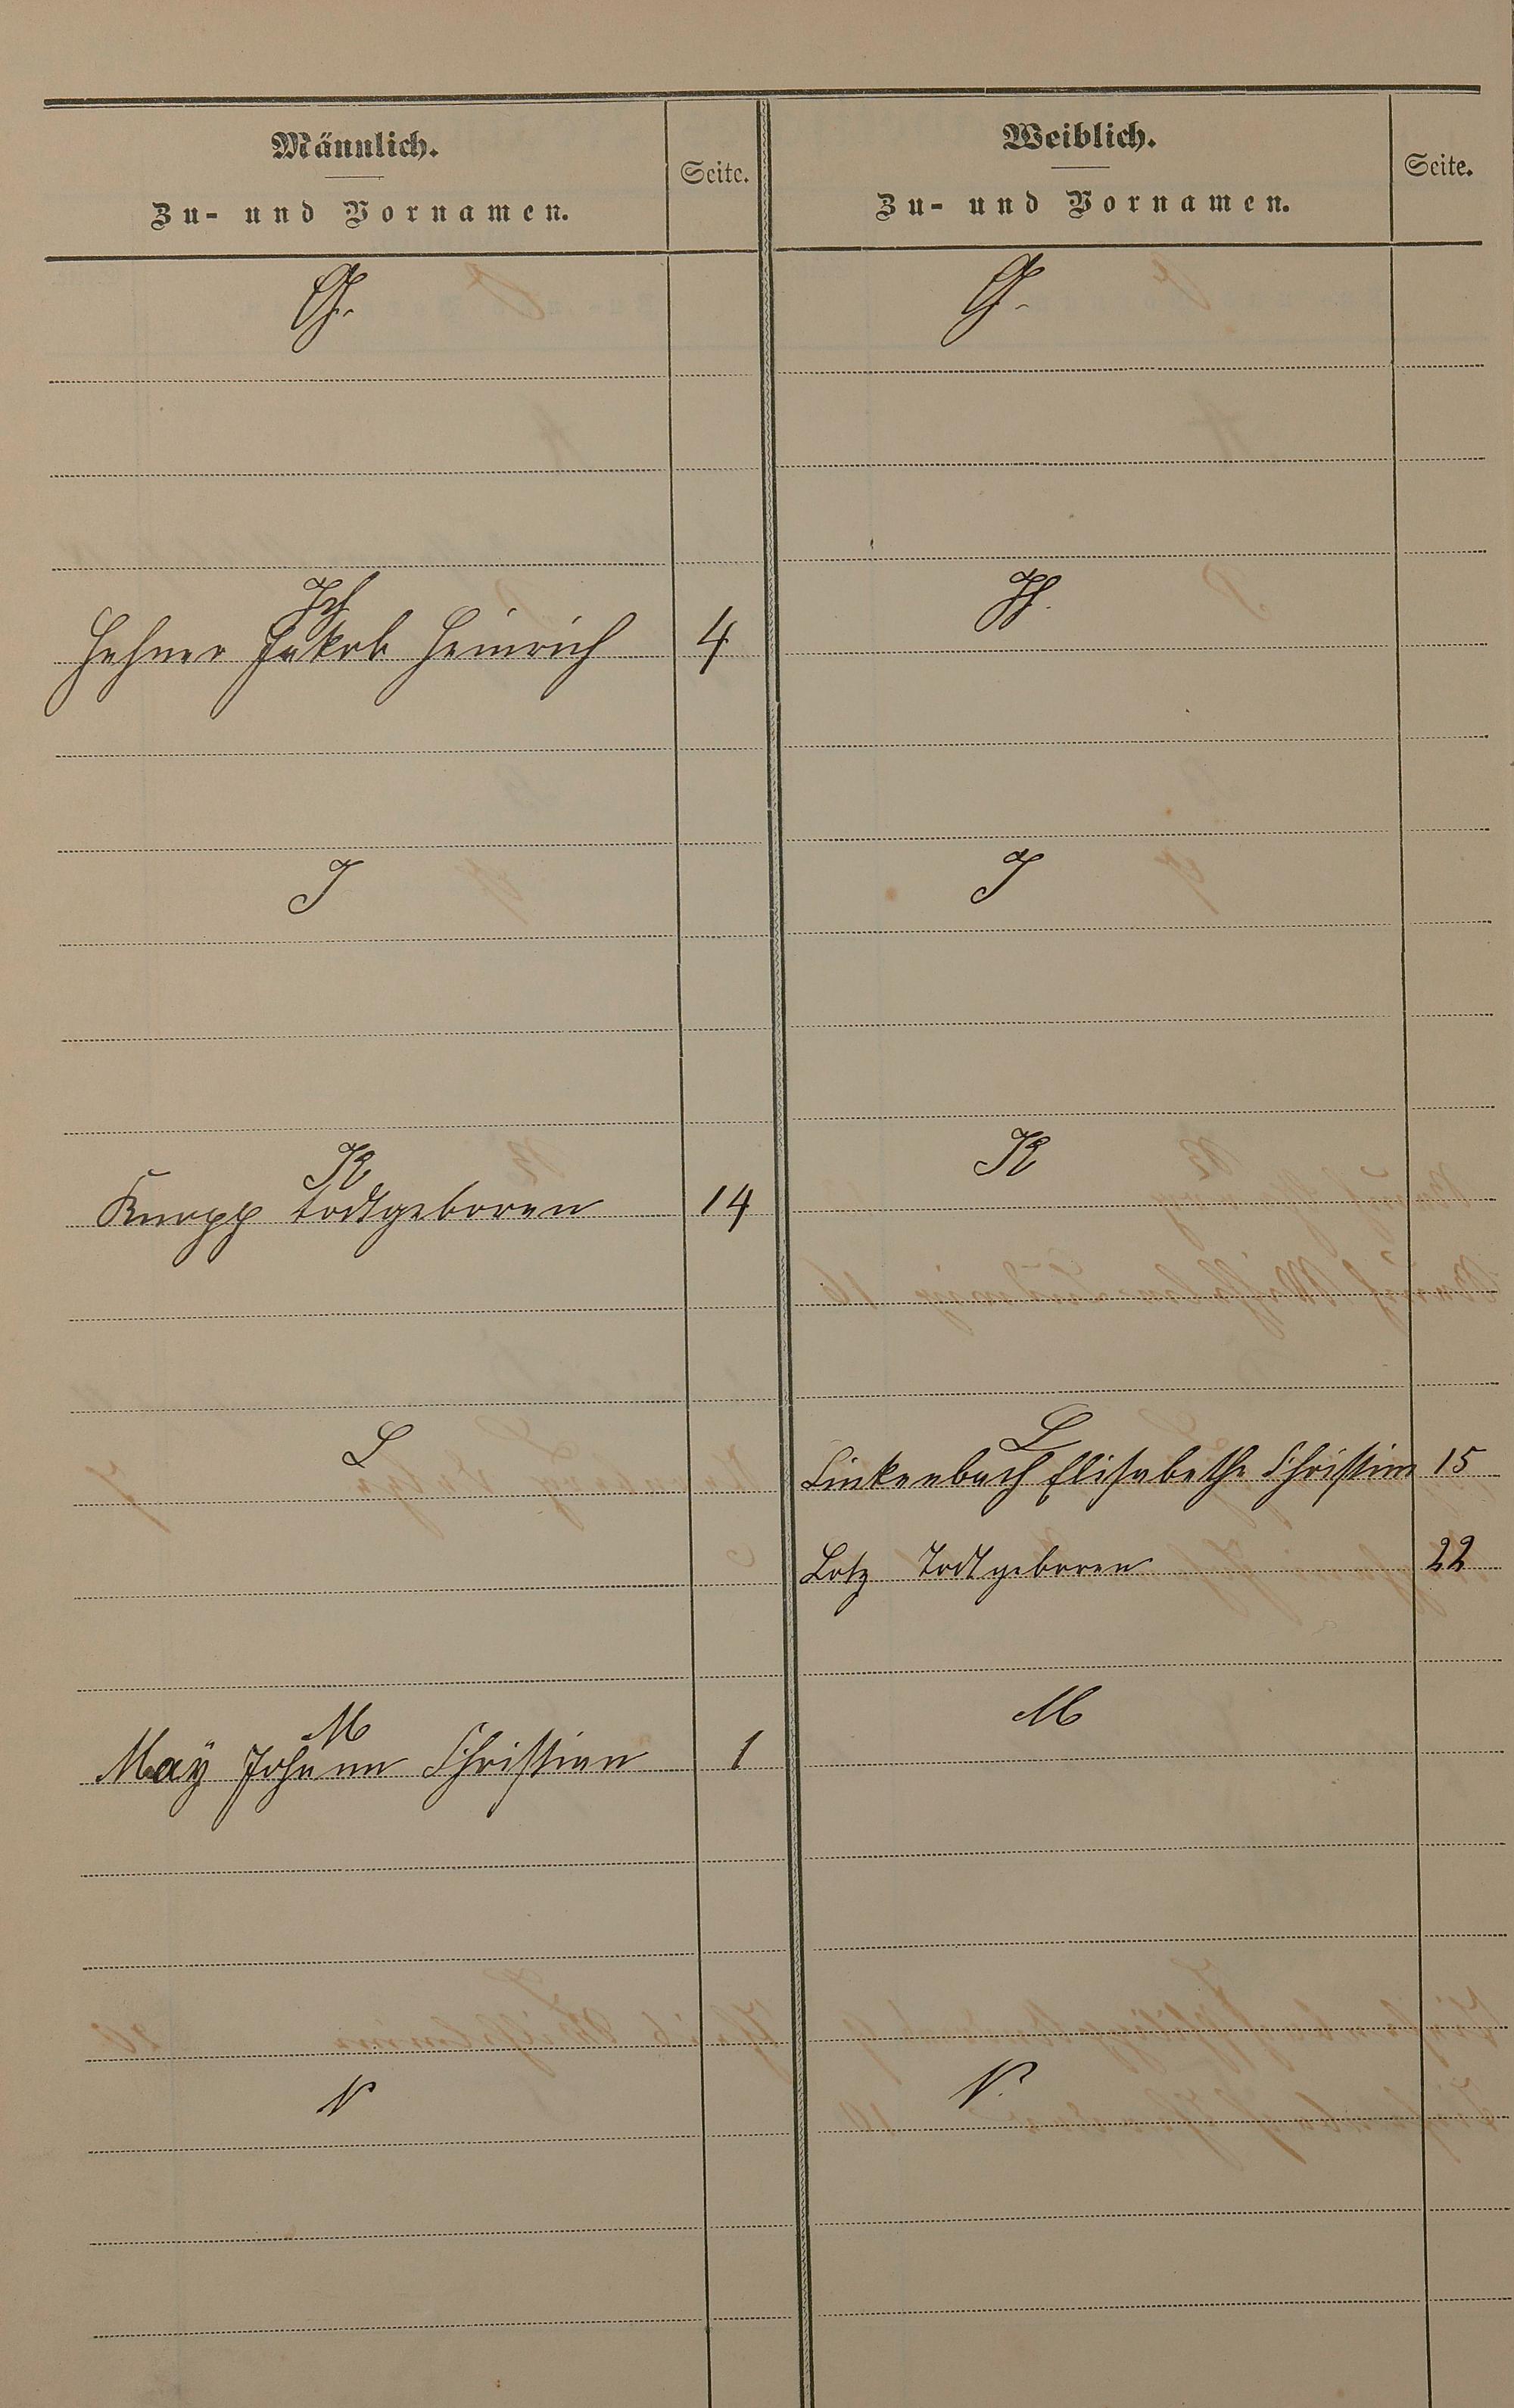 Männlich.
Zu- und Vornamen.
Seite.
Weiblich.
Zu- und Vornamen.
Seite.
G.
G.
H
H.
Hehner Jakob Heinrich 4
J
J
K
K
Knapp todtgeboren 14
L
L
Linkenbach Elisabethe Christine 15
Lotz Todtgeboren 22
M
M
Maÿ Johann Christian 1
N
N.